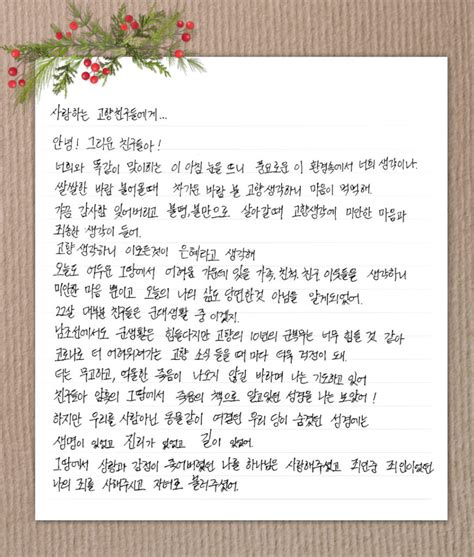 사랑하는 고향친구들에게...
안녕! 그리운 친구들아!
너희와 똑같이 맞이하는 이 아침 눈을 뜨니 풍요로운 이 환경속에서 너희 생각이나.
쌀쌀한 바람 불어올때 차가운 바람 불 고향생각하니 마음이 먹먹해.
가끔 감사함 잊어버리고 불평,불만으로 살아갈때 고향생각에 미안한 마음과
죄송한 생각이 들어.
고향생각하니 이모든것이 은혜라고 생각해
오늘도 어두운 그땅에서 어려움 가운데 있을 가족, 친척, 친구 이웃들을 생각하니
미안한 마음 뿐이고 오늘의 나의 삶도 당연한것 아님을 알게되었어.
22살 대부분 친구들은 군대생활 중 이겠지.
남조선에서도 군생활은 힘들다지만 고향의 10년의 군복무는 너무 힘들 것 같아
코로나로 더 어려워져가는 고향 소식 들을 때 마다 더욱 걱정이 돼.
더는 무고하고, 억울한 죽음이 나오지 않길 바라며 나는 기도하고 있어
친구들아 암흑의 그땅에서 죽음의 책으로 알고있던 성경을 나는 보았어!
하지만 우리를 사람아닌 동물같이 여겼던 우리 당이 숨겼던 성경에는
생명이 있었고 진리가 있었고 길이 있었어.
그땅에서 심장과 감정이 죽어버렸던 나를 하나님은 사랑해주셨고 죄인중 죄인이었던
나의 죄를 사해주시고 자녀로 불러주셨어.